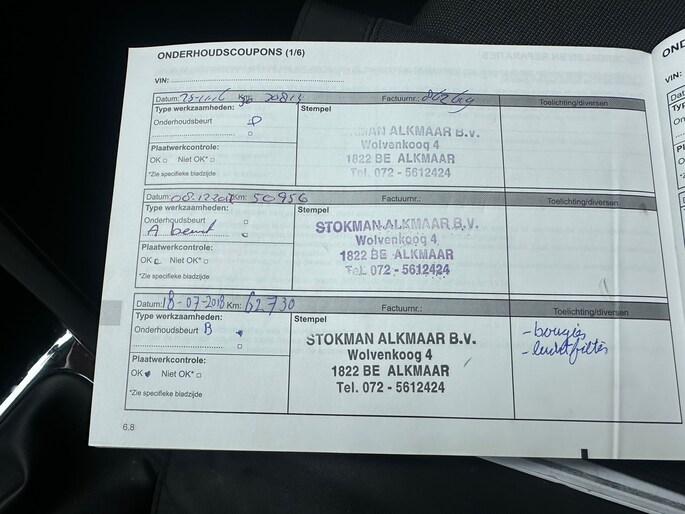 ONDERHOUDSCOUPONS (1/6)
VIN:
Datum: Km: Factuurnr.: Toelichting/diversen
Type werkzaamheden: Stempel
Onderhoudsbeurt
Plaatwerkcontrole:
OK □ Niet OK* □
*Zie specifieke bladzijde
STOKMAN ALKMAAR B.V.
Wolvenkoog 4
1822 BE ALKMAAR
Tel. 072 - 5612424
Datum: 08.12.2017 Km: 50956 Factuurnr.: Toelichting/diversen
Type werkzaamheden: Stempel
Onderhoudsbeurt □
A beurt
Plaatwerkcontrole:
OK Niet OK* □
*Zie specifieke bladzijde
STOKMAN ALKMAAR B.V.
Wolvenkoog 4
1822 BE ALKMAAR
Tel. 072 - 5612424
Datum: 18-07-2018 Km: 62730 Factuurnr.: Toelichting/diversen
Type werkzaamheden: Stempel
Onderhoudsbeurt B
Plaatwerkcontrole:
OK Niet OK* □
*Zie specifieke bladzijde
STOKMAN ALKMAAR B.V.
Wolvenkoog 4
1822 BE ALKMAAR
Tel. 072 - 5612424
- bougies
- luchtfilter
6.8
VIN: